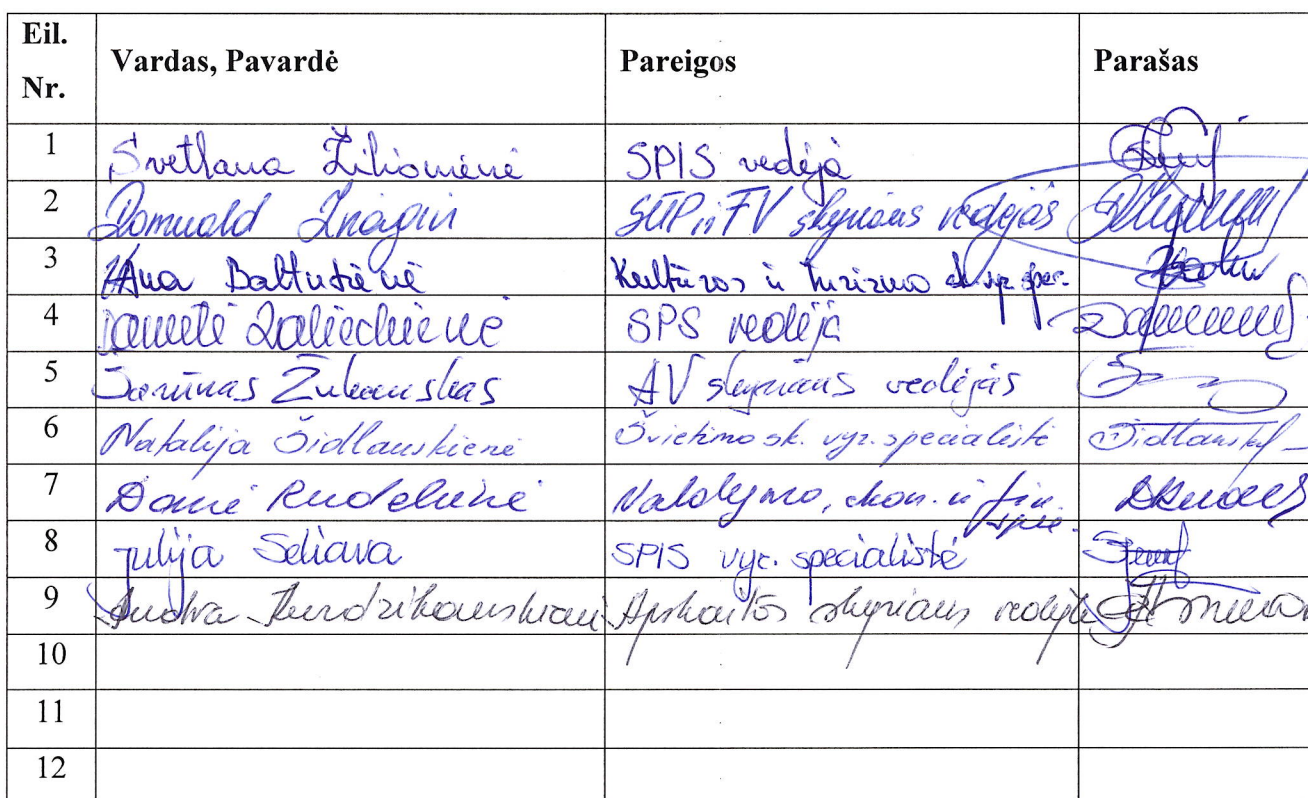 Eil. Nr. Vardas, Pavardė Pareigos Parašas
1 Svetlana Žilionienė SPIS vedėja
2 Romuald skyriaus vedėjas
3 Baltutienė Kultūros ir turizmo sk. vyr. spec.
4 SPS vedėja
5 Šarūnas Žukauskas AV skyriaus vedėjas
6 Natalija Šidlauskienė Švietimo sk. vyr. specialistė Šidlausk
7 Danė Valdymo, ekon. ir fin.
8 Julija Seliava SPIS vyr. specialistė
9 Audra Apskaitos skyriaus vedėja
10
11
12